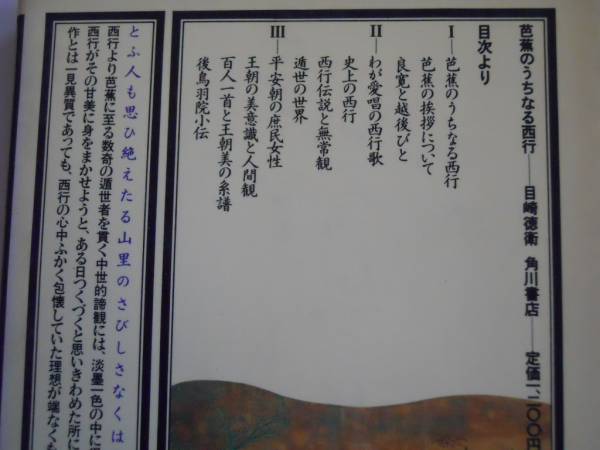 芭蕉のうちなる西行――目崎徳衛 角川書店――定価一、二〇〇円
目次より
Ⅰ―芭蕉のうちなる西行
芭蕉の挨拶について
良寛と越後びと
Ⅱ―わが愛唱の西行歌
史上の西行
西行伝説と無常観
遁世の世界
Ⅲ―平安朝の庶民女性
王朝の美意識と人間観
百人一首と王朝美の系譜
後鳥羽院小伝
とふ人も思ひ絶えたる山里のさびしさなくは
西行より芭蕉に至る数奇の遁世者を貫く中世的諦観には、淡墨一色の中に
西行がその甘美に身をまかせようと、ある日つくづくと思いきわめた所に
作とは一見異質であっても、西行の心中ふかく包懐していた理想が端なくも